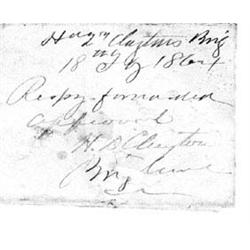 Hdqrs Claytons Brig
18 July 1864
Respy forwarded
approved
H. D. Clayton
Brig Genl